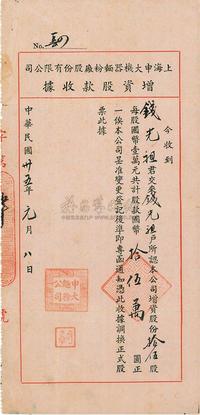 No.
上海申大機器麵粉廠股份有限公司
增資股款收據
今收到
錢光祖君交來錢光祖戶所認本公司增資股份拾伍股
每股國幣壹萬元共計股款國幣拾伍萬圓正
一俟本公司呈准變更登記後準即專函通知憑此收據調換正式股
票此據
中華民國卅五年元月八日